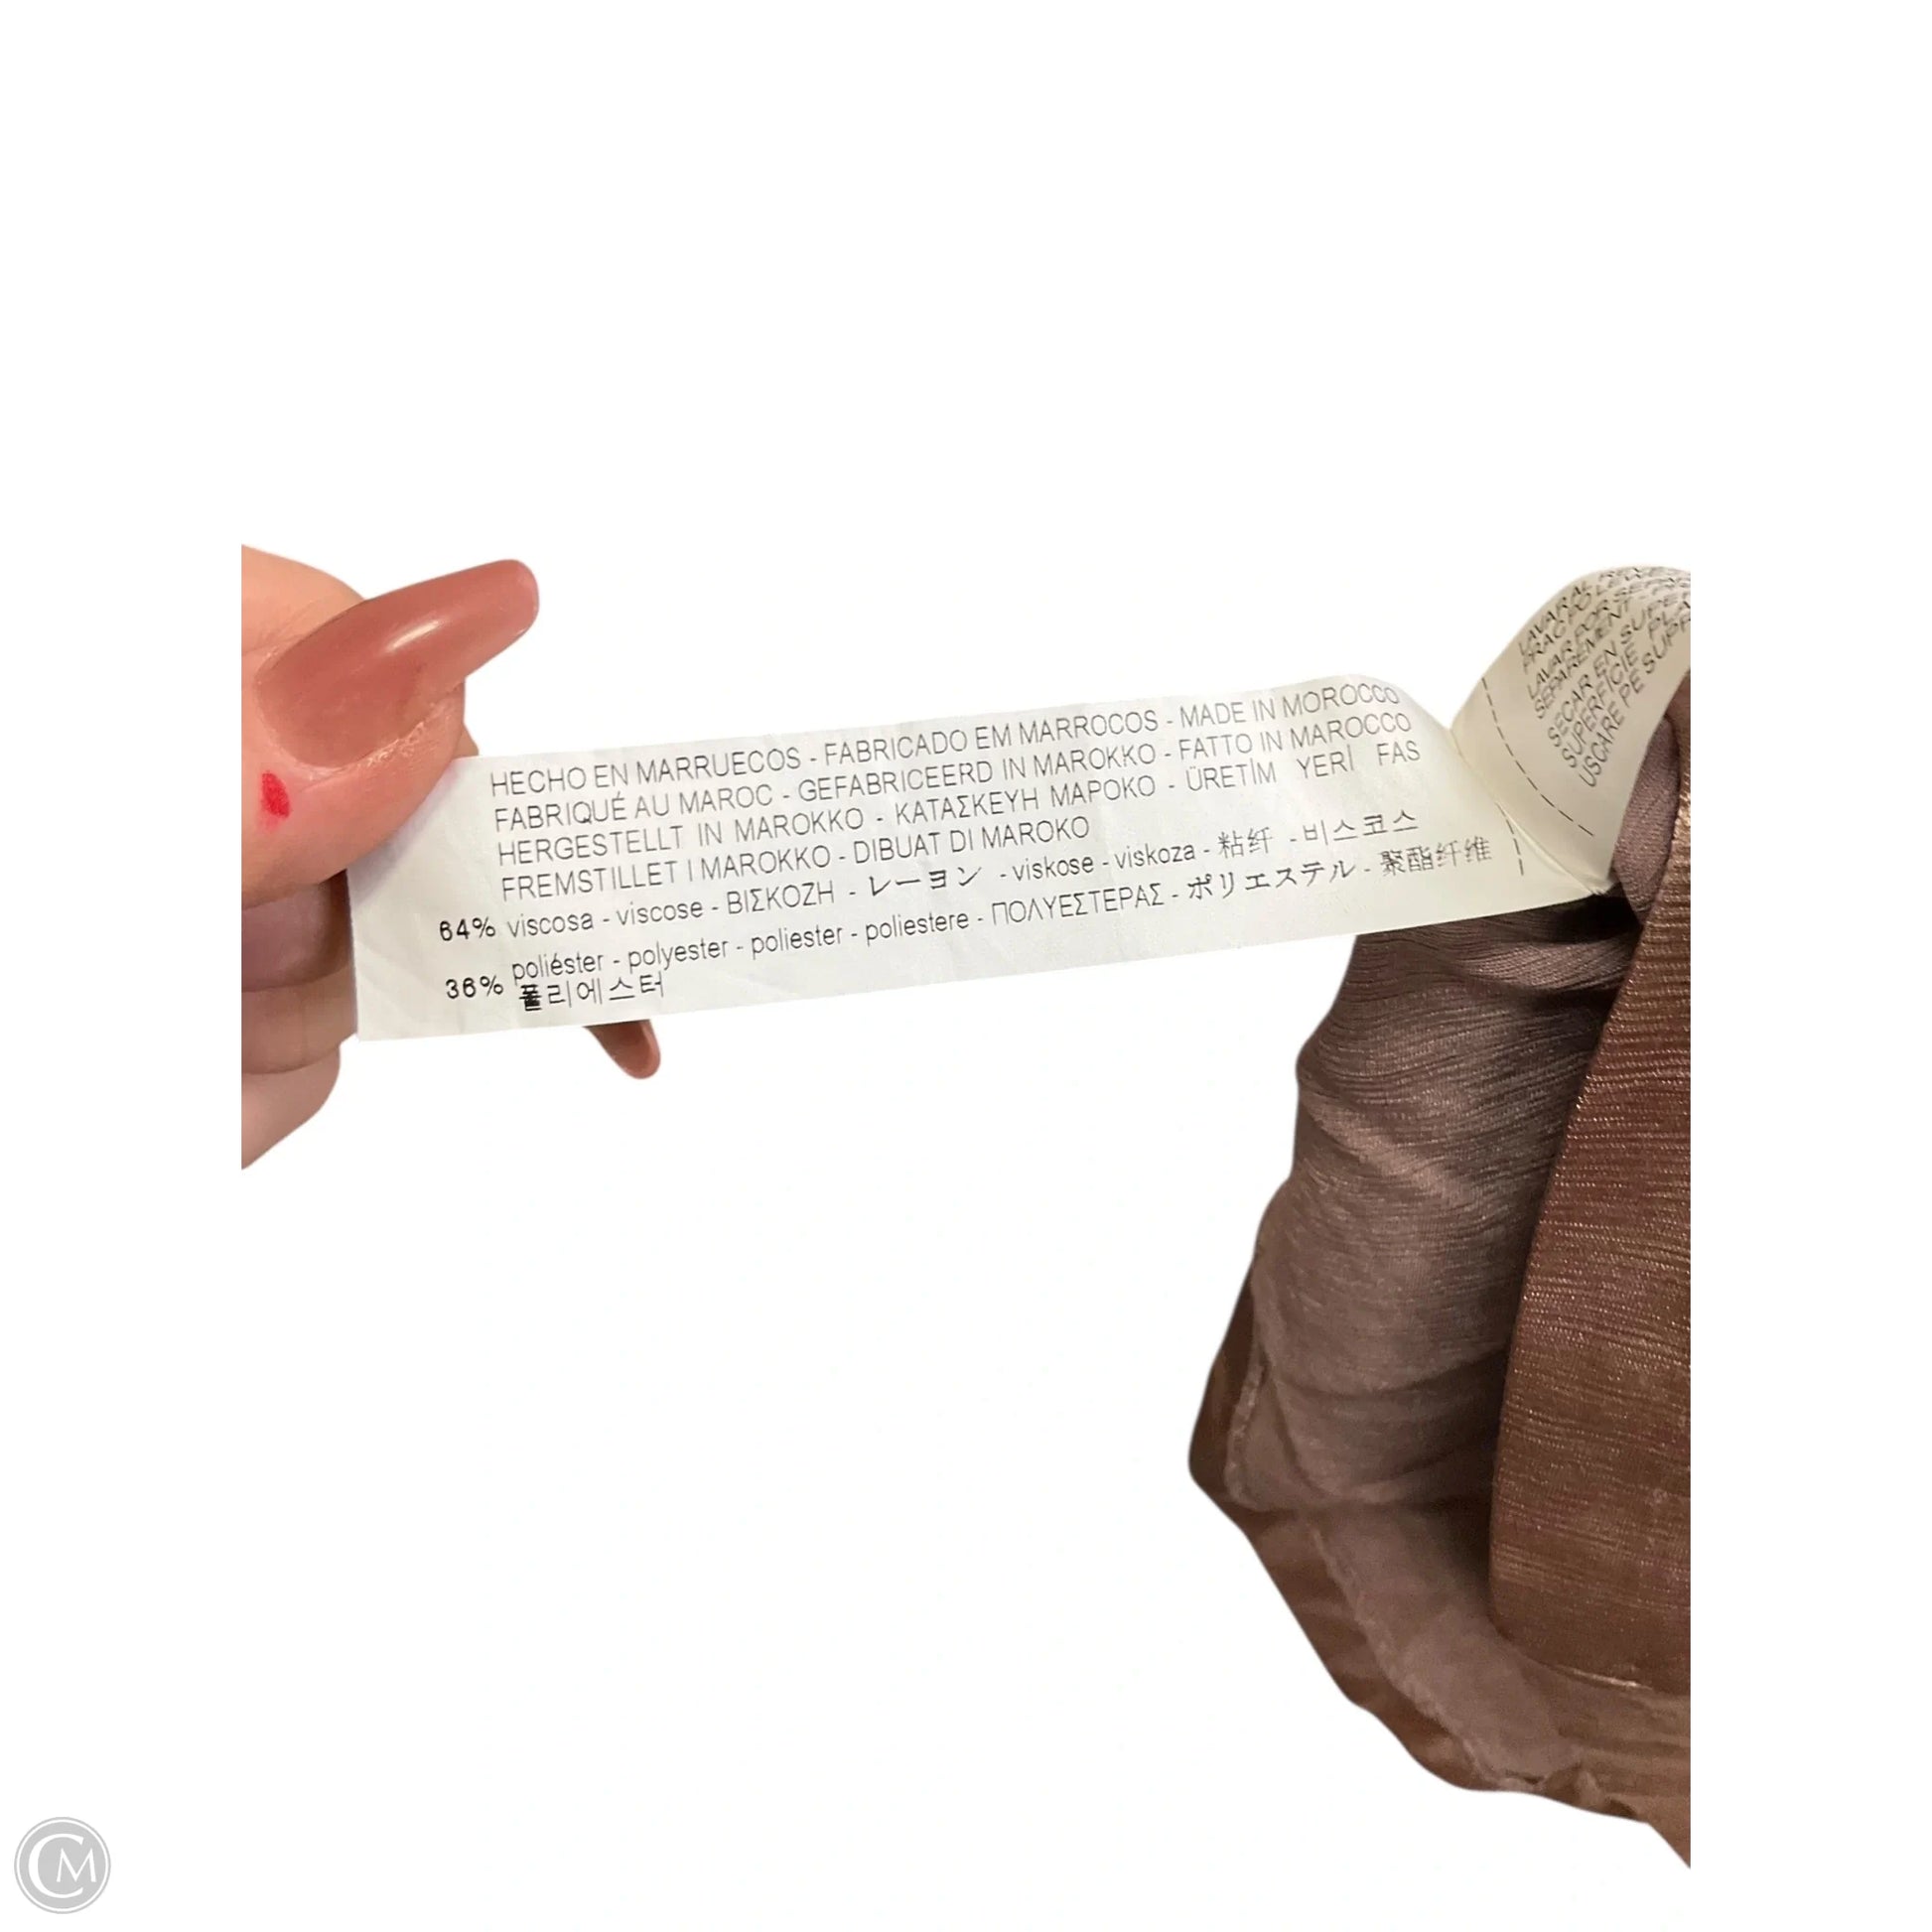 HECHO EN MARRUECOS - FABRICADO EM MARROCOS - MADE IN MOROCCO
FABRIQUÉ AU MAROC - GEFABRICEERD IN MAROKKO - FATTO IN MAROCCO
HERGESTELLT IN MAROKKO - ΚΑΤΑΣΚΕΥΗ ΜΑΡΟΚΟ - ÜRETİM YERİ FAS
FREMSTILLET I MAROKKO - DIBUAT DI MAROKO
64% viscosa - viscose - ΒΙΣΚΟΖΗ - レーヨン - viskose - viskoza - 粘纤 - 비스코스
36% poliéster - polyester - poliester - poliestere - ΠΟΛΥΕΣΤΕΡΑΣ - ポリエステル - 聚酯纤维
폴리에스터
LAVAR AL
LAVAR POR SEPA
SECAR EN SUPER
SUPERFICIE PLA
CM